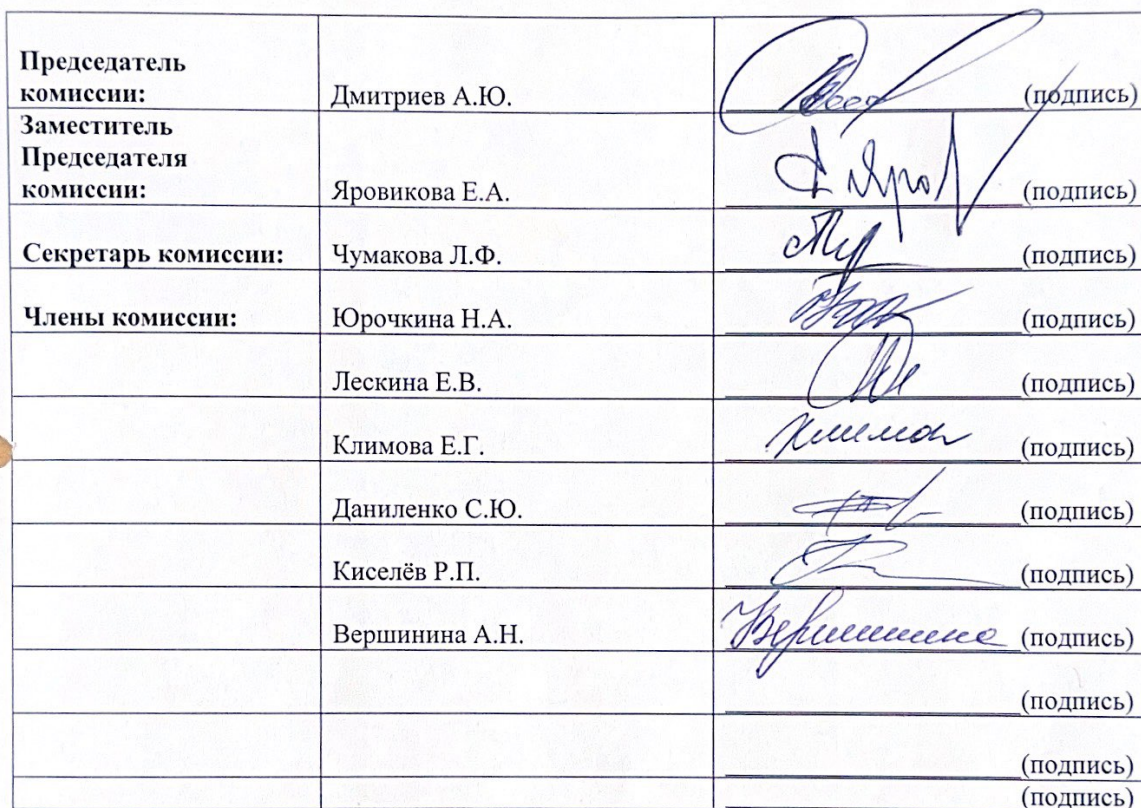 Председатель
комиссии: Дмитриев А.Ю. (подпись)
Заместитель
Председателя
комиссии: Яровикова Е.А. (подпись)
Секретарь комиссии: Чумакова Л.Ф. (подпись)
Члены комиссии: Юрочкина Н.А. (подпись)
Лескина Е.В. (подпись)
Климова Е.Г. Климов (подпись)
Даниленко С.Ю. (подпись)
Киселёв Р.П. (подпись)
Вершинина А.Н. (подпись)
(подпись)
(подпись)
(подпись)